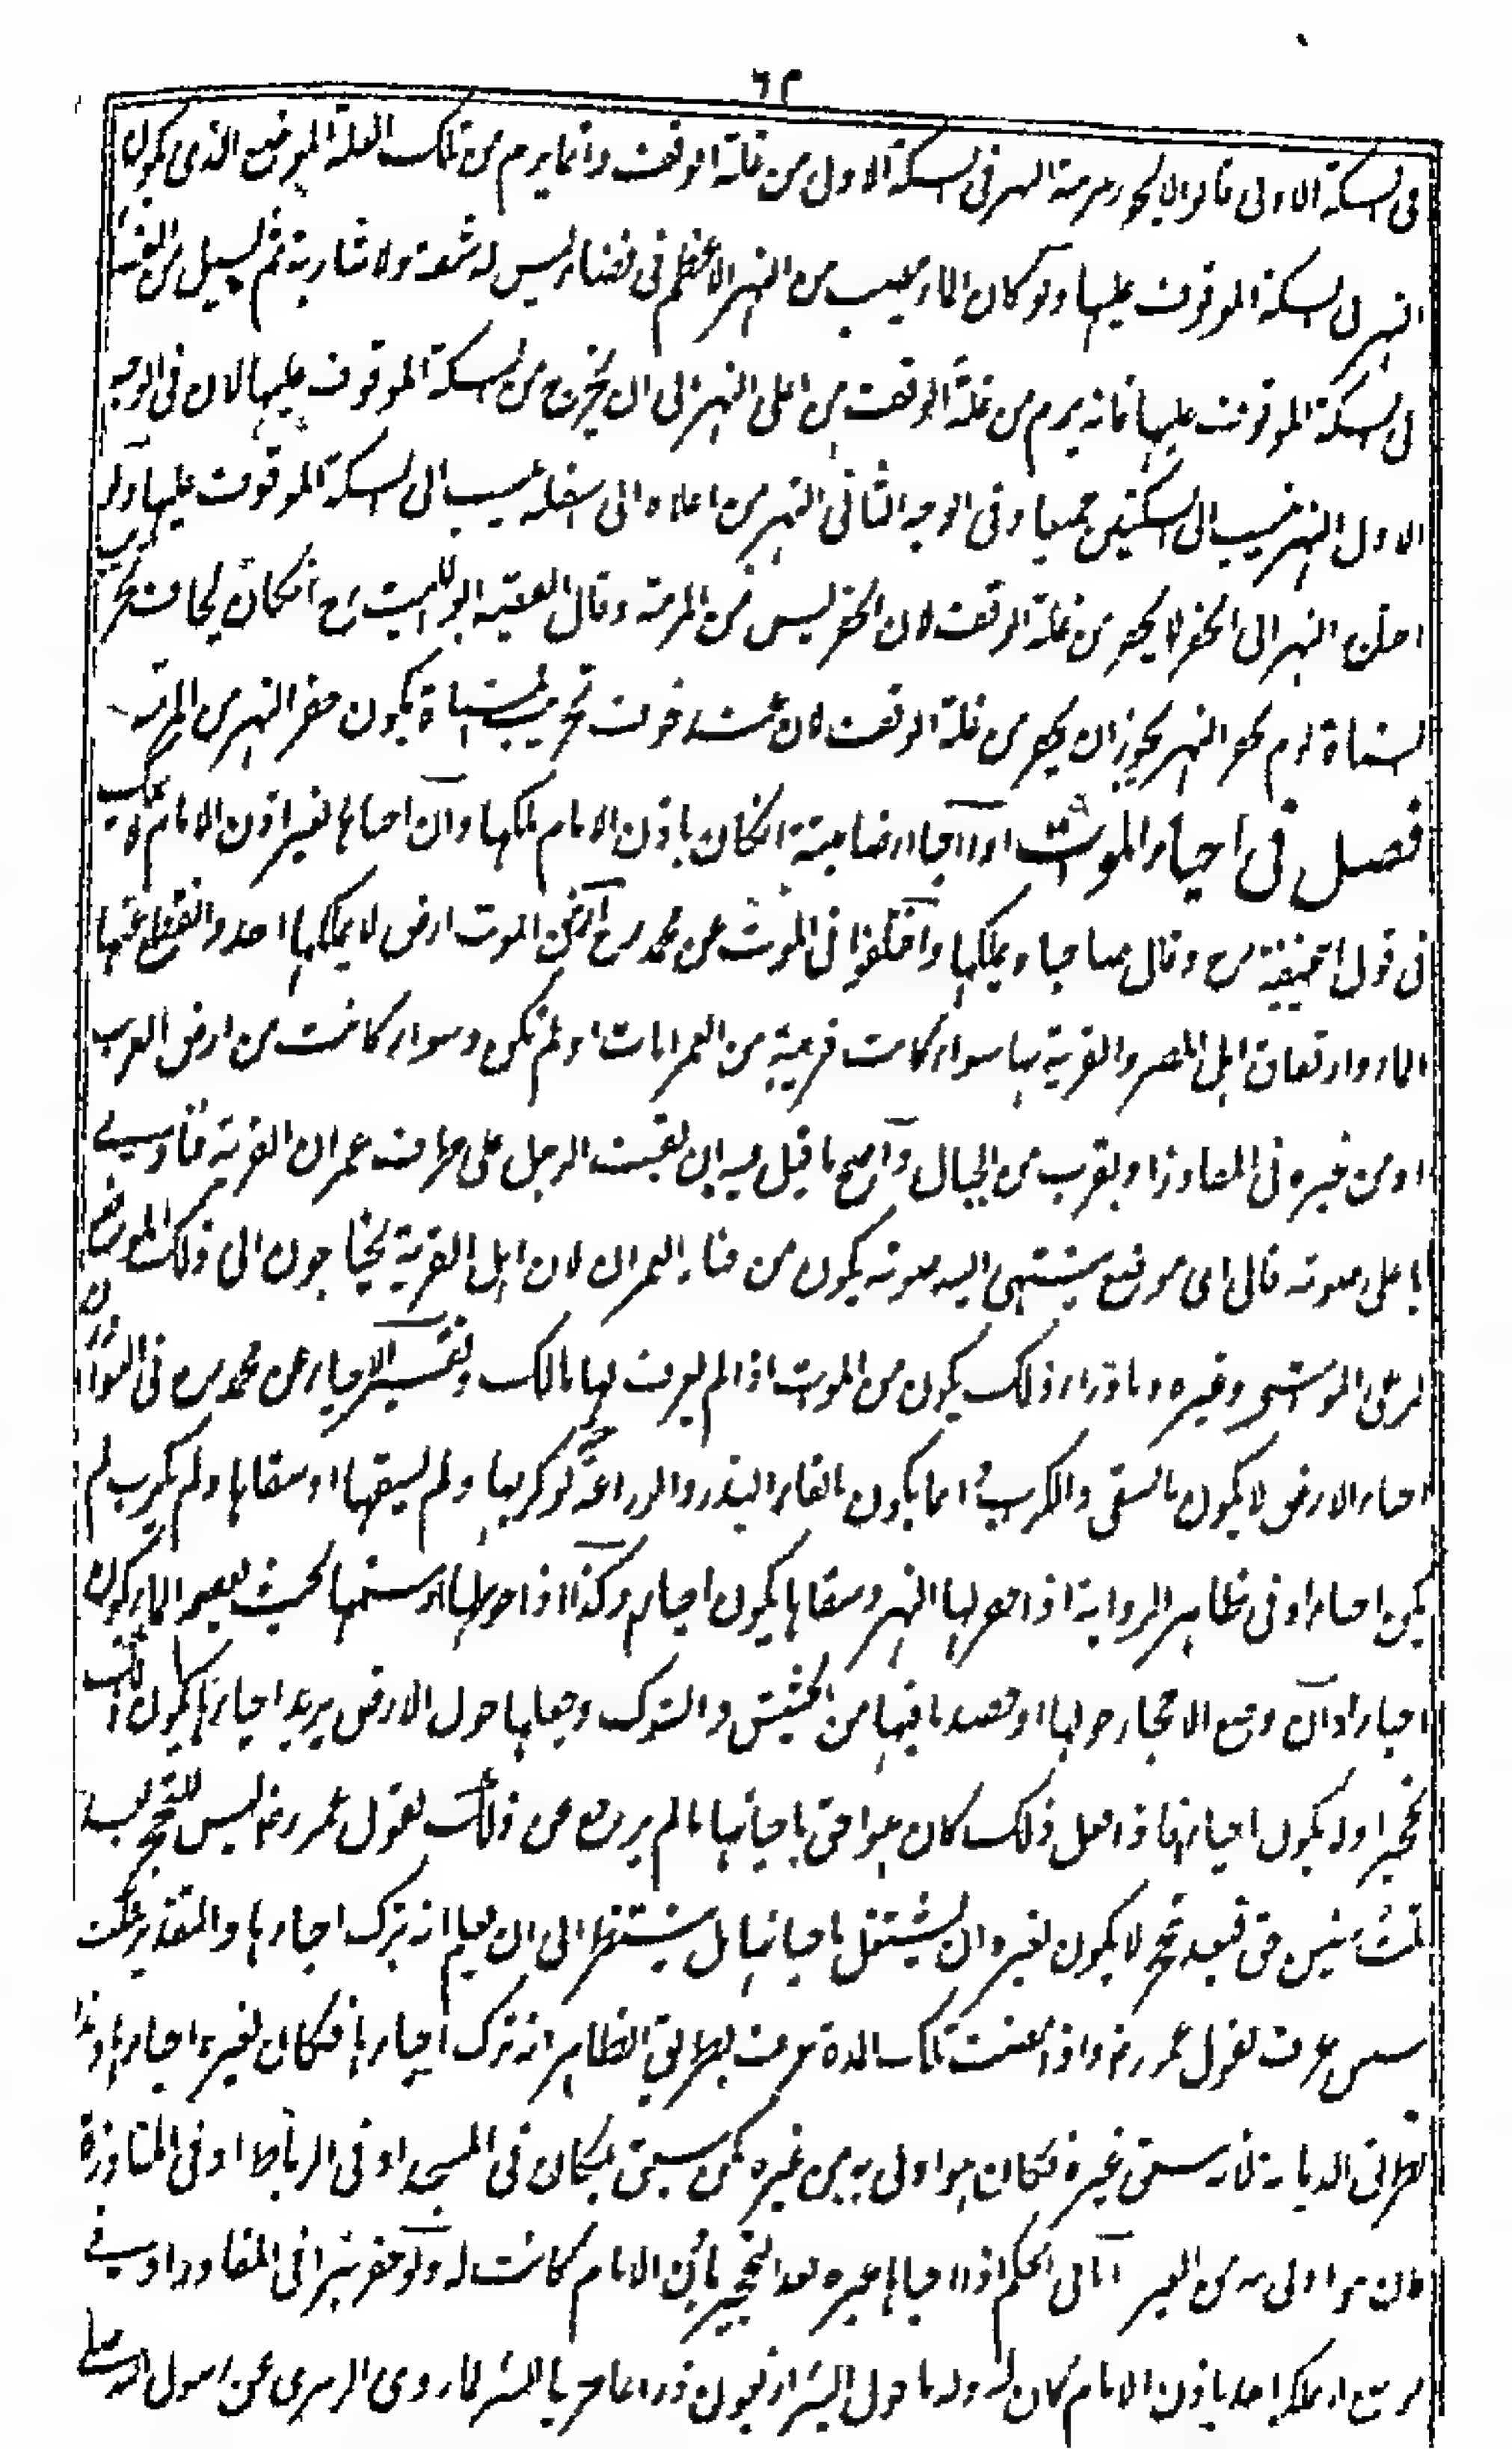 ٦٢
فى السكة الاولى قالوا لا يجوز مرمة النهر فى السكة الاولى من غلة الوقف وانما يرم من تلك الغلة الموضع الذى يكون
النهر فى السكة الموقوف عليها ولو كان الماء يصب من النهر الاعظم فى فضاء ليس له شفعة ولا شاربة ثم يسيل من الفضاء
الى السكة الموقوف عليها فانه يرم من غلة الوقف من اعلى النهر الى ان يخرج من السكة الموقوف عليها لان فى الوجه
الاول النهر ينسب الى السكتين جميعا وفى الوجه الثانى النهر من اعلاه الى اسفله ينسب الى السكة الموقوف عليها ولو
احتاج النهر الى الحفر لا يحفر من غلة الوقف لان الحفر ليس من المرمة وقال الفقيه ابو الليث رح انكان يخاف تخريب
المسناة لو لم يحفر النهر يجوز ان يحفر من غلة الوقف لان عند خوف تخريب المسناة يكون حفر النهر من المرمة
فصل فى احياء الموات اذا احيا ارضا ميتة انكان باذن الامام ملكها وان احياها بغير اذن الامام لا يملك
فى قول ابيحنيفة رح وقال صاحباه يملكها واختلفوا فى الموات عن محمد رح ارض الموات ارض لا يملكها احد وانقطع عنها
الماء وارتفاق اهل المصر والقرية بها سواء كانت قريبة من العمرانات او لم تكن وسواء كانت من ارض العرب
او من غيره فى المفاوز او بقرب من الجبال واصح ما قيل فيه ان يقف الرجل على طرف عمران القرية فينادى
باعلى صوته فالى اى موضع ينتهى اليه صوته يكون من فناء العمران لان اهل القرية يحتاجون الى ذلك الموضع
لرعى المواشى وغيره وما وراء ذلك يكون من الموات اذا لم يعرف لها مالك وتفسير الاحياء عن محمد رح فى النوادر
احياء الارض لا يكون بالسقى والكرب انما يكون بالقاء البذر والزراعة حتى لو كربها ولم يسقها او سقاها ولم يكرب لم
يكن احياء وفى ظاهر الرواية اذا حفر لها النهر وسقاها يكون احياء وكذا اذا حوطها او سنمها بحيث يعصم الماء يكون
احياء وان وضع الاحجار حولها او حصد ما فيها من الحشيش والشوك وجعلها حول الارض يريد احياءها يكون ذلك
تحجيرا ولا يكون احياء فاذا فعل ذلك كان هو احق باحيائها ما لم يرجع عن ذلك لقول عمر رض ليس للمتحجر بعد
ثلث سنين حق فبعد تحجره لا يكون لغيره ان يشتغل باحيائها بل ينتظر الى ان يعلم انه ترك احياءها والتقدير بثلث
سنين عرف بقول عمر رض واذا مضت تلك المدة عرف بطريق الظاهر انه ترك احياءها فكان لغيره احياءها وهذا
بطريق الديانة فانه سبق غيره فكان هو اولى به من غيره كمن سبق بمكان فى المسجد او فى الرباط او فى المفازة
كان هو اولى به من الغير اما فى الحكم اذا احياها غيره بعد التحجير باذن الامام كانت له ولو حفر بئرا فى المفاوز او فى
موضع لا يملكه احد باذن الامام كان له وله ما حول البئر اربعون ذراعا حريما للبئر لما روى الزهرى عن رسول الله صلى